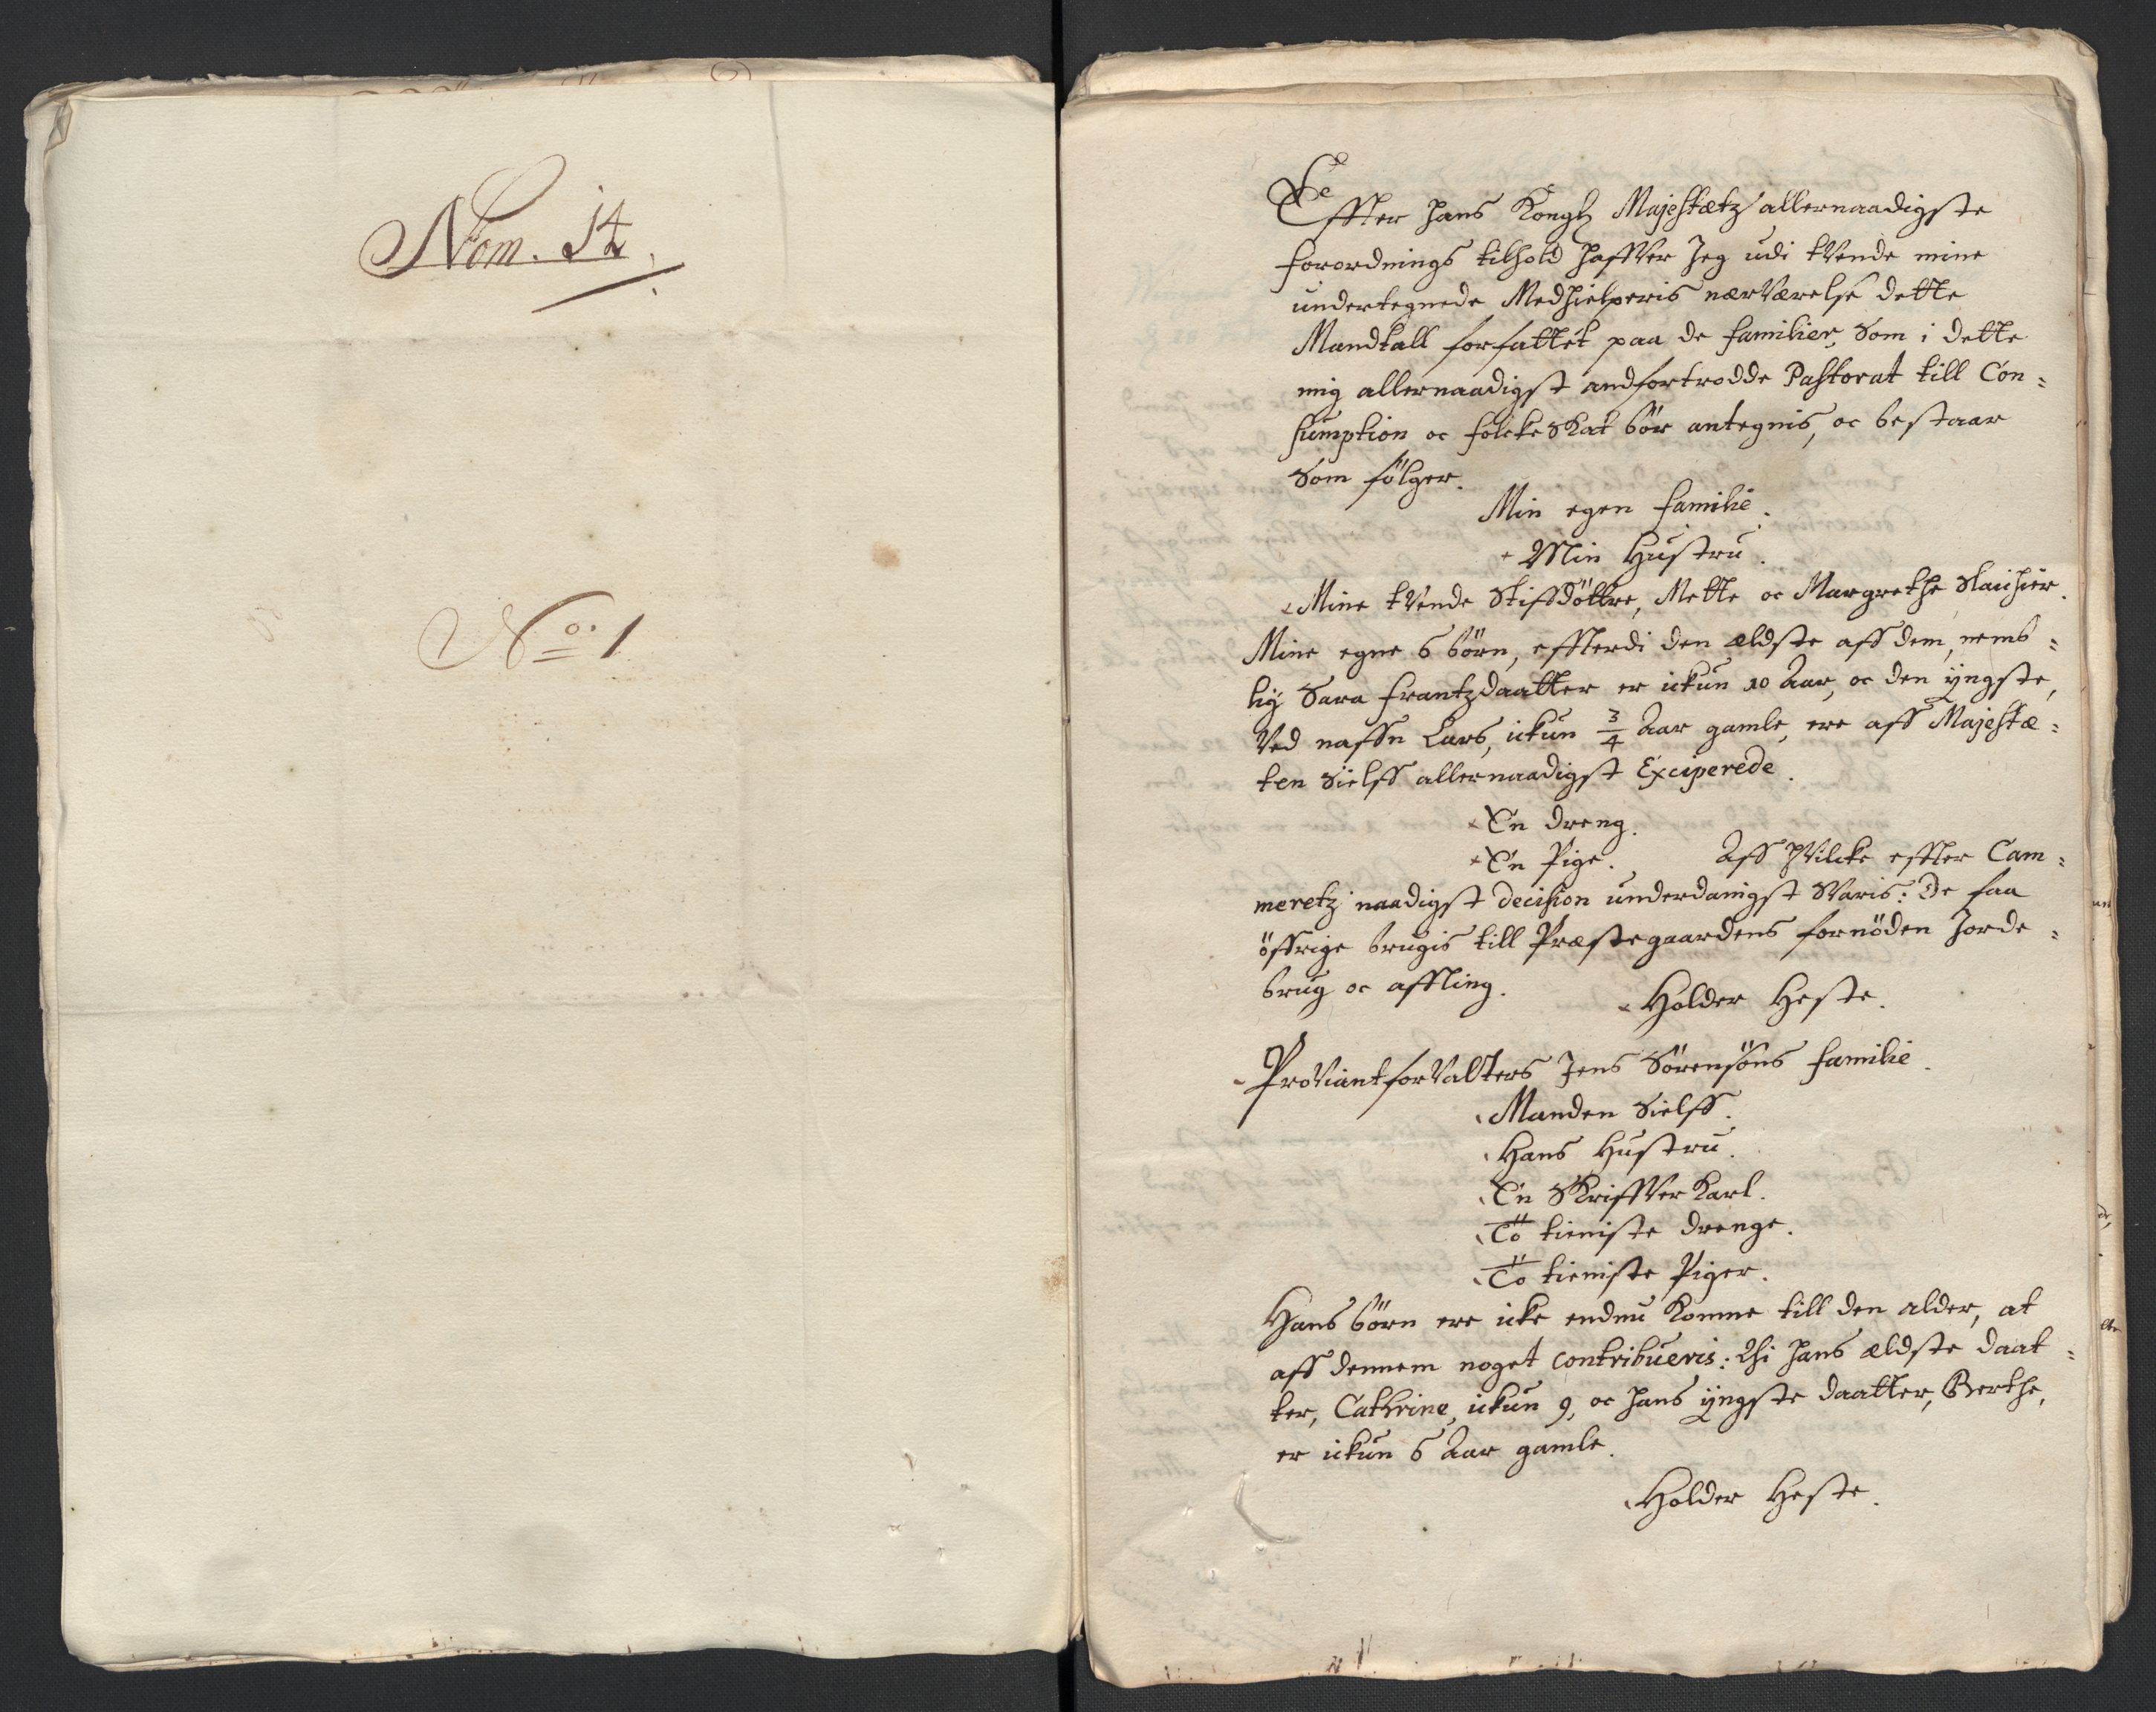 Nom. 14.
No. 1
Effter hans Kongl Majestætz allernaadigste
forordnings tilhold haffver Jeg udi tvende mine
undertegnede Medhielperis nærværelse dette
Mandtall forfattet paa de familier, som i dette
mig allernaadigst andfortrodde Pastorat till Con=
sumption oc folckeskat bör antegnis, oc bestaar
som fölger.
Min egen familie.
Min Hustru.
Mine tvende Stifdöttre, Mette oc Margrethe
Mine egne 6 börn, effterdi den ældste aff dem, nemb=
lig Sara Frantzdaatter er ickun 10 Aar, oc den yngste,
ved naffn Lars, ickun 3/4 Aar gamle, ere aff Majestæ=
ten sielff allernaadigst Exciperede.
En dreng.
En Pige. Aff hvilcke effter Cam=
meretz naadigst decision underdanigst svaris: De faa
öffrige brugis till Præstegaardens fornöden Jorde=
brug oc affling.
Holder Heste.
Proviantforvalters Jens Sörensöns familie.
Manden sielff.
Hans Hustru.
En Skriffver Karl.
To tieniste drenge.
To tieniste Piger.
Hans börn ere icke endnu komne till den alder, at
aff dennem noget contribueris: Thi hans ældste daat=
ter, Cathrine, ickun 9, oc hans yngste daatter, Berthe,
er ickun 6 Aar gamle.
Holder Heste.